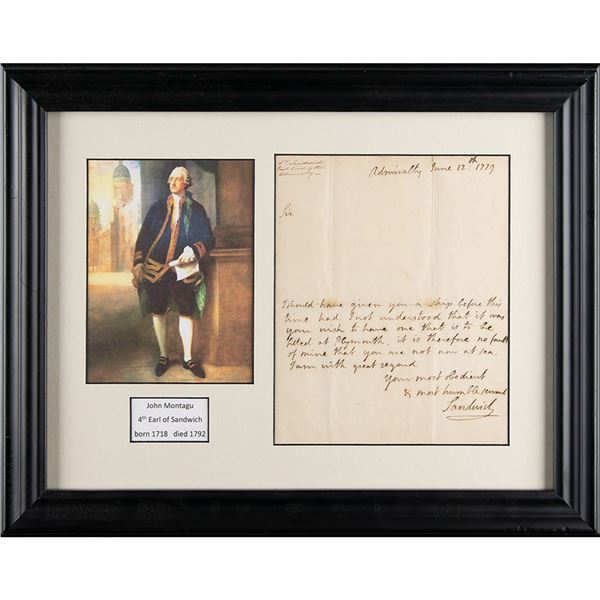 Ld Sandwich
first Lord of the
Admiralty
Admiralty June 12th 1779
Sir
I should have given you a ship before this
time had I not understood that it was
your wish to have one that is to be
fitted at Plymouth, it is therefore no fault
of mine that you are not now at sea.
I am with great regard
Your most obedient
& most humble servant
Sandwich
John Montagu
4th Earl of Sandwich
born 1718 died 1792